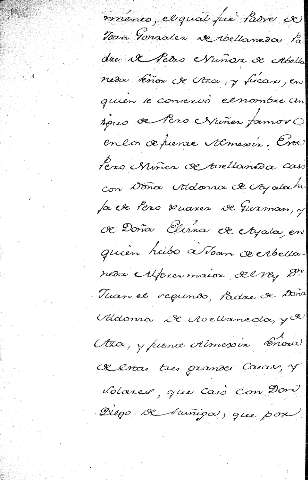 ximénes, el qual fue Padre de
Joan Gonzalez de Avellaneda Pa
dre de Pedro Nuñez de Abella
neda Señor de Aza, y Fúcar, en
quien se conservó el nombre an
tiguo de Pero Nuñez famoso
en los de fuente Almexir. Este
Pero Nuñez de Avellaneda caso
con Doña Aldonza de Ayala hi
ja de Pero Suarez de Guzman, y
de Doña Elvira de Ayala, en
quien hubo á Joan de Abella
neda Alferez maior del rey Dn
Juan el segundo, Padre de Doña
Aldonza de Avellaneda, y de
Aza, y fuente Almexir Señora
de estas tres grandes Casas, y
solares, que casó con Don
Diego de Zuñiga, que por